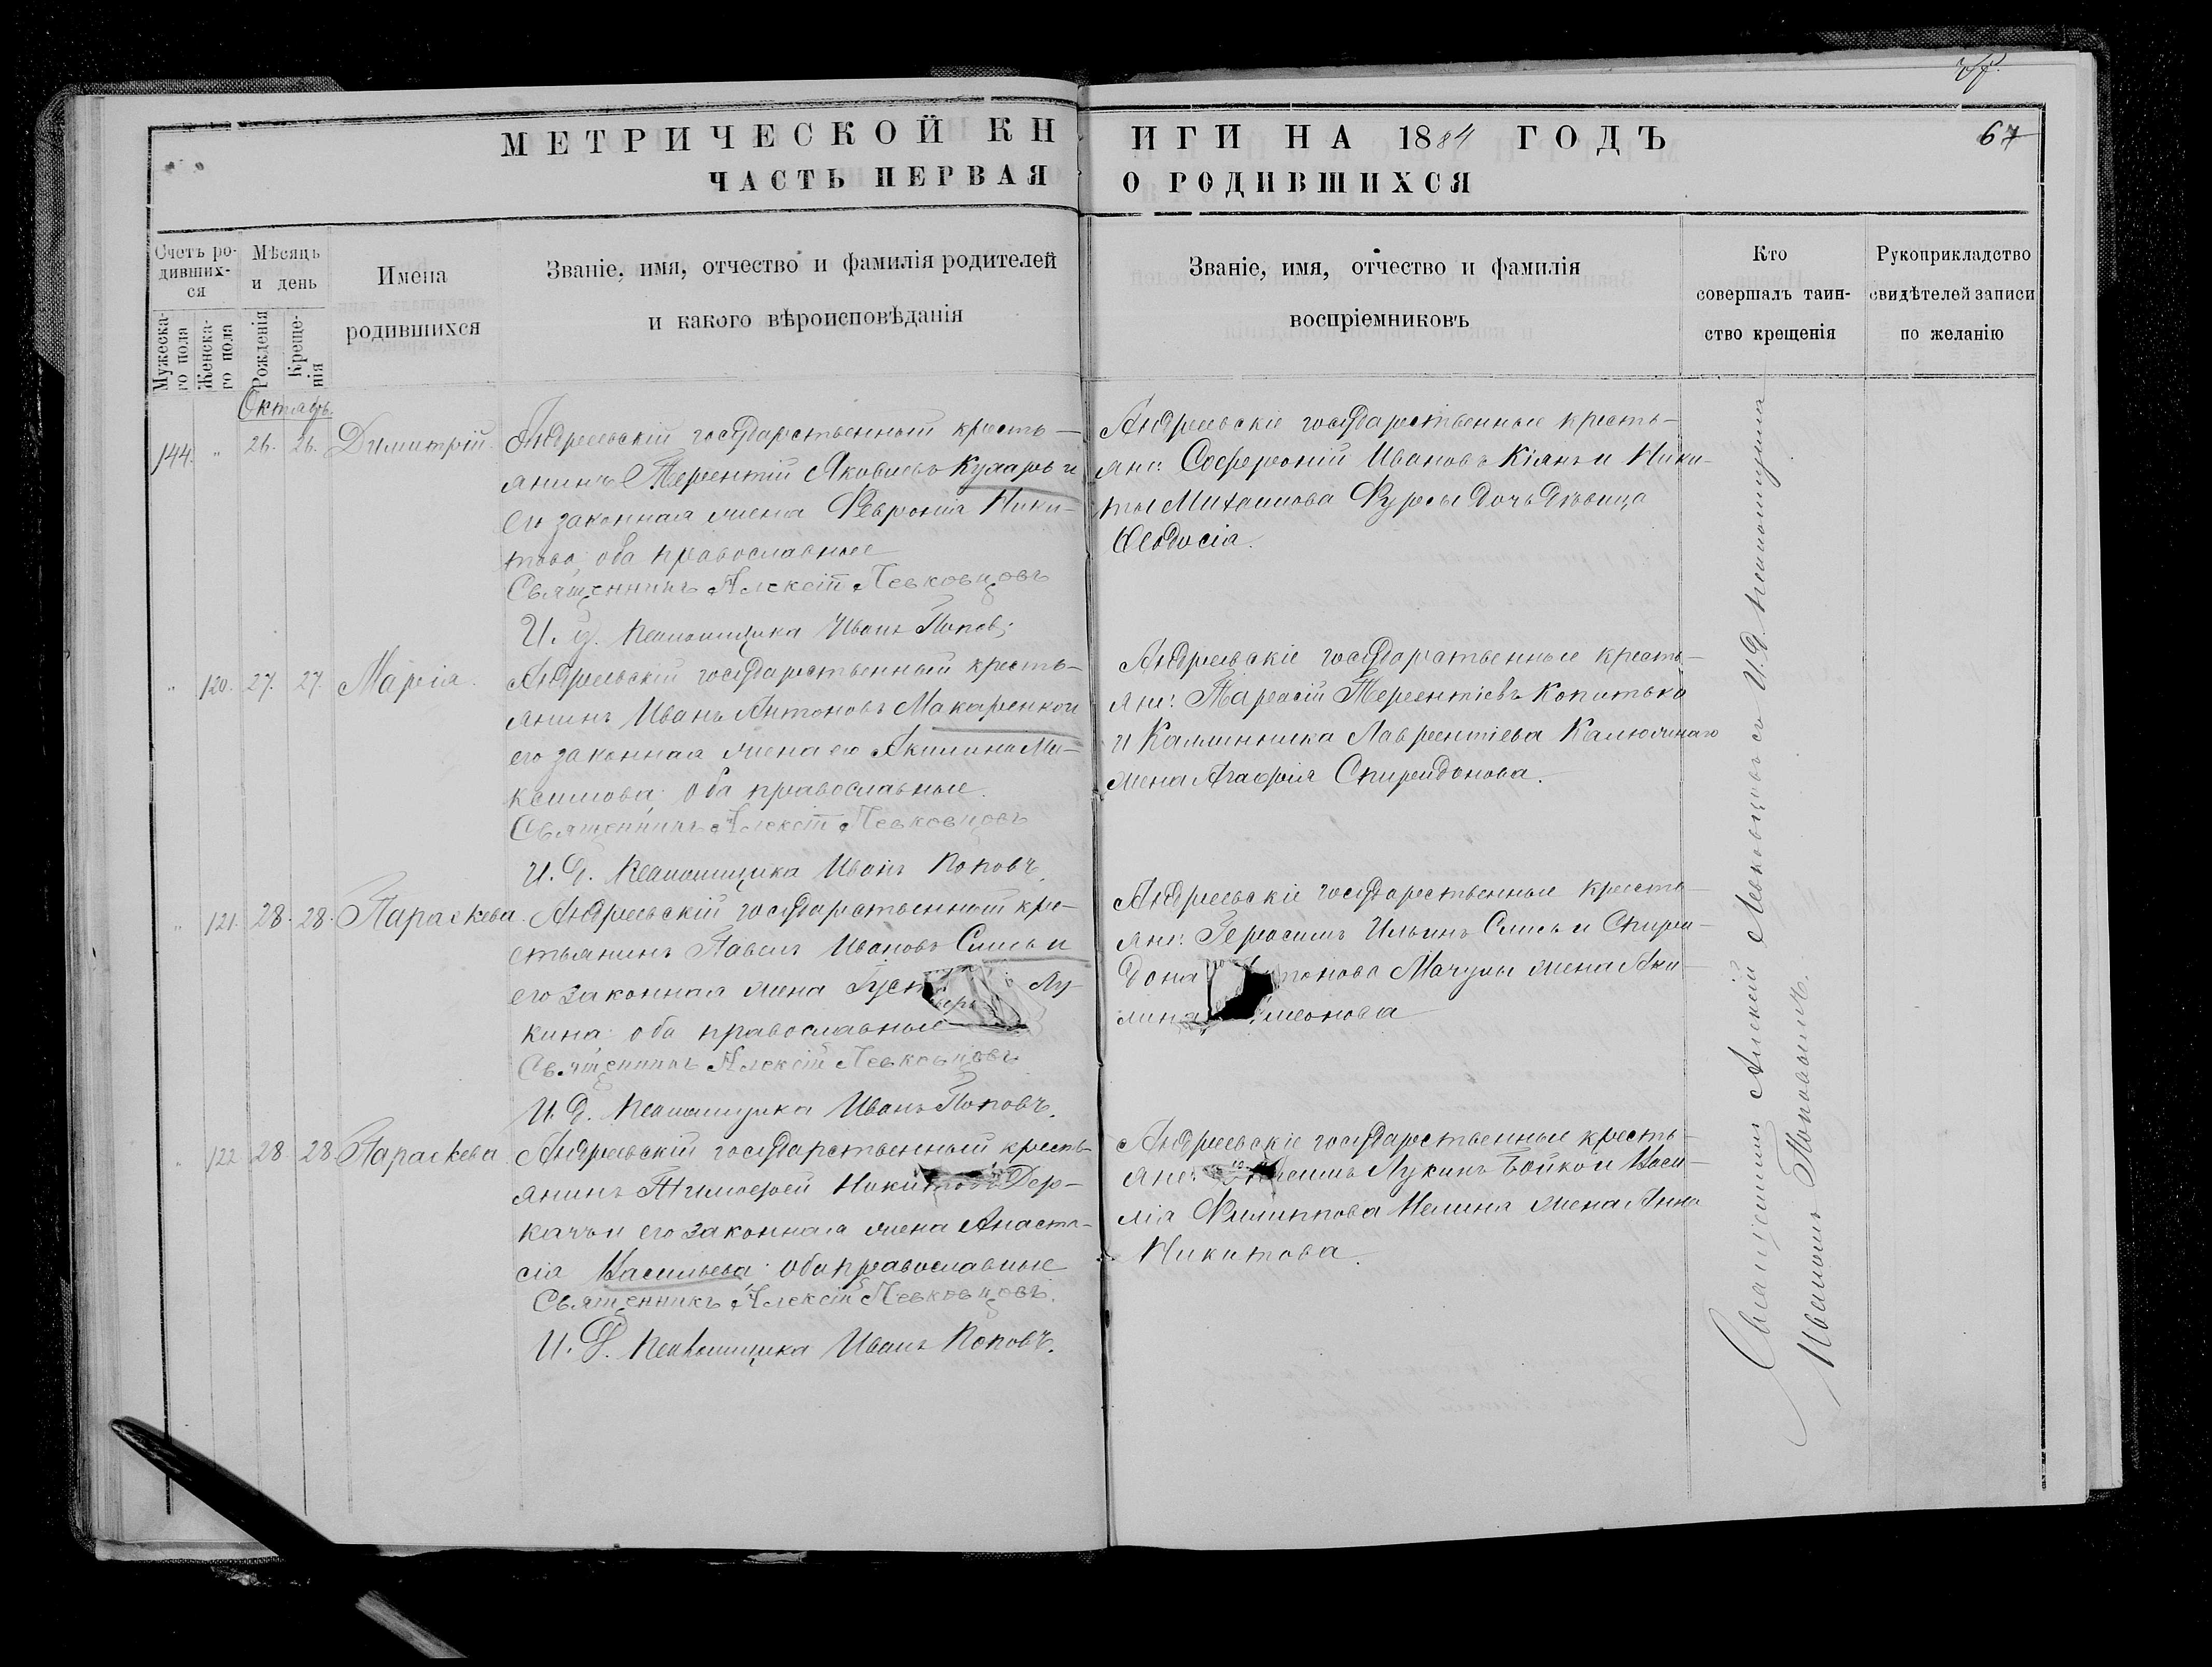 МЕТРИЧЕСКОЙ КНИГИ НА 1884 ГОДЪ
67
ЧАСТЬ ПЕРВАЯ О РОДИВШИХСЯ
Счетъ ро-
дивших-
ся
Мужеска-
го пола
Женска-
го пола
Мѣсяцъ
и день
Рожденія
Креще-
нія
Имена
родившихся
Званіе, имя, отчество и фамилія родителей
и какого вѣроисповѣданія
Званіе, имя, отчество и фамилія
воспріемниковъ
Кто
совершалъ таин-
ство крещенія
Рукоприкладство
свидѣтелей записи
по желанію
Октябрь.
144. " 26. 26. Димитрій.
Андреевскій государственный кресть-
янинъ Терентій Яковлевъ и
его законная жена Феврониія Ники-
това, оба православные
Священникъ Алексѣй Левковцовъ
И. д. псаломщика Иванъ Попов;
Андреевскіе государственные кресть-
яне: Софроній Ивановъ Кіянъ и Ники-
ты Михаилова Фурсы дочь дѣвица
Ѳеодосія.
" 120. 27. 27. Марія.
Андреевскій государственный кресть-
янинъ Иванъ Антоновъ Макаренко и
его законная жена его Акилина Ма-
ксимова, оба православные.
Священникъ Алексѣй Левковцовъ
И. д. псаломщика Иванъ Поповъ.
Андреевскіе государственные кресть-
яне: Тарасій Терентіевъ Копитько
и Каллиника Лаврентіева Калюжнаго
жена Агафія Спиридонова.
" 121. 28. 28. Параскева.
Андреевскій государственный кре-
стьянинъ Павелъ Ивановъ Слись и
его законная жена Лу-
кина, оба православные
Священникъ Алексѣй Левковцовъ
И. д. псаломщика Иванъ Поповъ.
Андреевскіе государственные кресть-
яне: Герасимъ Ильинъ Слись и Спири-
дона Мачулы жена Аки-
лина
" 122 28. 28 Параскева
Андреевскій государственный кресть-
янинъ Тимофей Никитовъ Дер-
качъ и его законная жена Анаста-
сія Васильева, оба православные
Священникъ Алексѣй Левковцовъ.
И. д. псаломщика Иванъ Поповъ.
Андреевскіе государственные кресть-
яне: Лукинъ Бойко и Васи-
лія Филиппова жена Анна
Никитова.
Священникъ Алексій Левковцовъ съ И. д. псаломщика
Иваномъ Поповымъ.